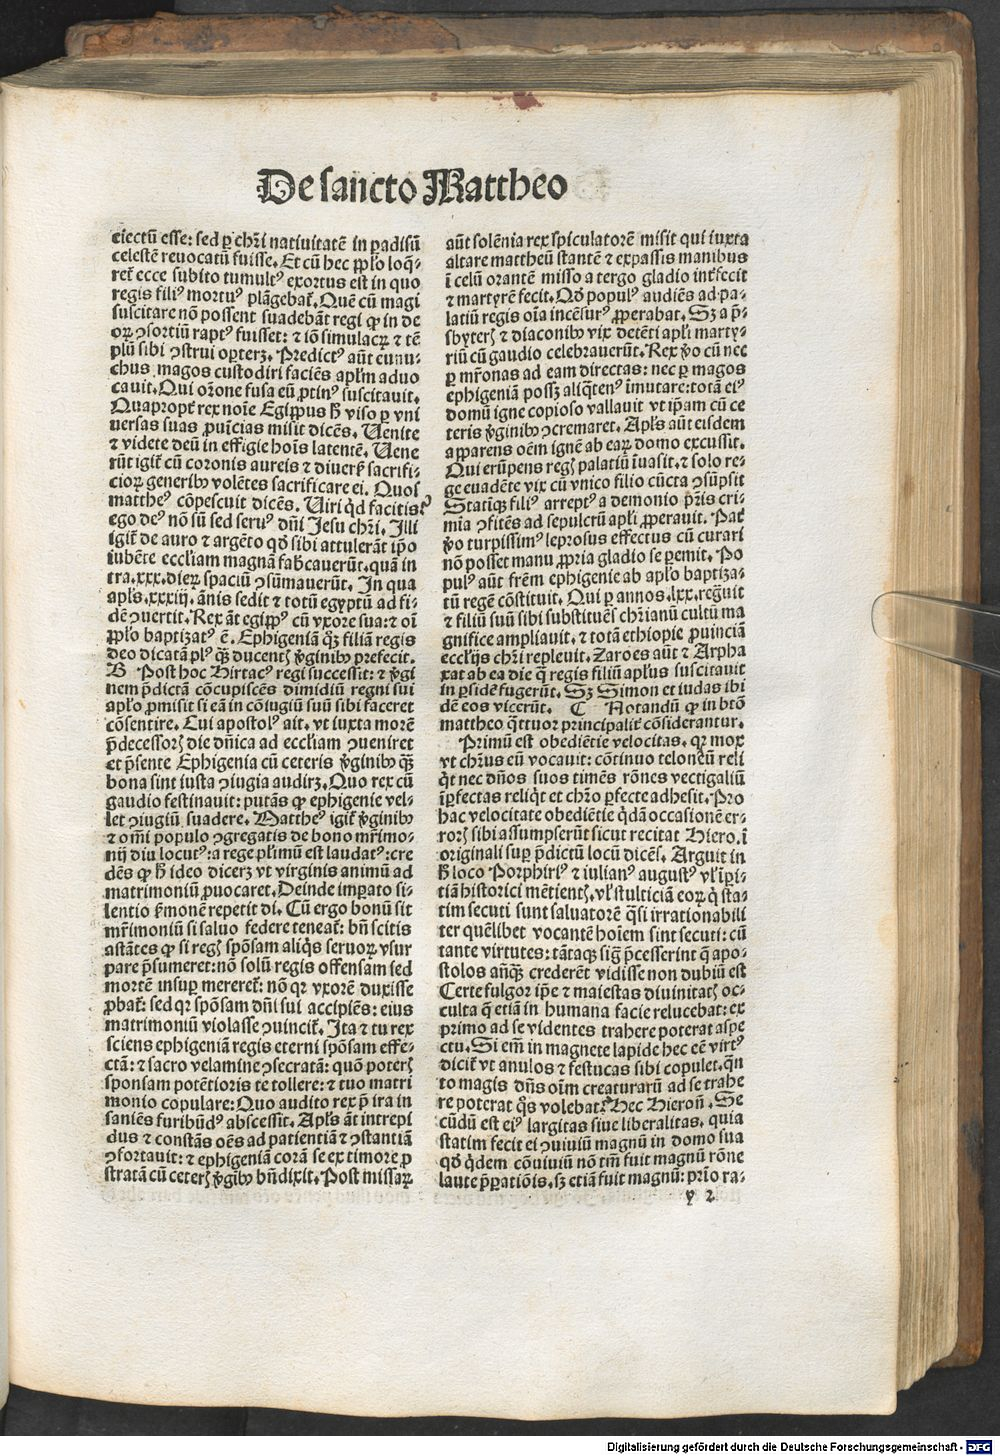 De sancto Mattheo
eiectū esse: sed ꝑ chr̄i natiuitatē in ꝑadisū
celestē reuocatū fuisse. Et cū hec ꝓp̄lo loq̄-
ret᷑ ecce subito tumultꝰ exortus est in quo
regis filiꝰ mortuꝰ plāgebat᷑. Quē cū magi
suscitare nō possent suadebāt regi ꝙ in de
oꝝ ꝯsortiū raptꝰ fuisset: ⁊ iō simulacꝝ ⁊ tē
plū sibi ꝯstrui oꝑterꝫ. Predictꝰ aūt eunu-
chus magos custodiri faciēs apl̄m aduo
cauit. Qui or̄one fusa eū ꝓtinꝰ suscitauit.
Quapropt᷑ rex noīe Egippus hͦ viso ꝑ vni
uersas suas ꝓuīcias misit dicēs. Uenite
⁊ videte deū in effigie hoīs latentē. Uene
rūt igit᷑ cū coronis aureis ⁊ diuerſ sacrifi-
cioꝝ generibꝰ volētes sacrificare ei. Quos
mattheꝰ cōpescuit dicēs. Uiri qd facitis?
ego deꝰ nō sū sed seruꝰ dn̄i Jesu chr̄i. Illi
igit᷑ de auro ⁊ argēto qd̄ sibi attulerāt ip̄o
iubēte eccl̄iam magnā fabͥcauerūt. quā in
tra .xxx. dieꝝ spaciū ꝯsūmauerūt. In qua
apl̄s .xxxiij. ānis sedit ⁊ totū egyptū ad fi-
dē ꝯuertit. Rex āt egippꝰ cū vxore sua: ⁊ oī
ꝓp̄lo baptizatꝰ ē. Ephigeniā qꝫ filiā regis
deo dicatā plꝰ qꝫ ducentꝭ v̄ginibꝰ prefecit.
B Post hoc Hirtacꝰ regi successit: ⁊ v̄gi
nem p̄dictā cōcupiscēs dimidiū regni sui
apl̄o ꝓmisit si eā in cōiugiū suū sibi faceret
cōsentire. Cui apostolꝰ ait. vt iuxta morē
p̄decessorꝭ die dn̄ica ad eccl̄iam ꝯueniret
et p̄sente Ephigenia cū ceteris v̄ginibꝰ qꝫ
bona sint iusta ꝯiugia audirꝫ. Quo rex cū
gaudio festinauit: putās ꝙ ephigenie vel-
let ꝯiugiū suadere. Mattheꝰ igit᷑ v̄ginibꝰ
⁊ om̄i populo ꝯgregatis de bono mr̄imo-
nij diu locutꝰ: a rege pl̄imū est laudatꝰ: cre
dēs ꝙ hͦ ideo dicerꝫ vt virginis animū ad
matrimoniū ꝓuocaret. Deinde imꝑato si-
lentio ẜmonē repetit di. Cū ergo bonū sit
mr̄imoniū si saluo federe teneat᷑: bn̄ scitis
astātes ꝙ si regꝭ spōsam aliqͥs seruoꝝ vsur
pare p̄sumeret: nō solū regis offensam sed
mortē insuꝑ mereret᷑: nō qꝛ vxorē duxisse
ꝓbat᷑: sed qꝛ spōsam dn̄i sui accipiēs: eius
matrimoniū violasse ꝯuincit᷑. Ita ⁊ tu rex
sciens ephigeniā regis eterni spōsam effe-
ctā: ⁊ sacro velamine ꝯsecratā: quō poterꝭ
sponsam potētioris te tollere: ⁊ tuo matri
monio copulare: Quo audito rex p̄ ira in
saniēs furibūdꝰ abscessit. Apl̄s āt intrepi
dus ⁊ constās oēs ad patientiā ⁊ ꝯstantiā
ꝯfortauit: ⁊ ephigeniā corā se ex timore ꝓ
stratā cū ceterꝭ v̄gībꝰ bn̄dixit. Post missaꝝ
aūt solēnia rex spiculatorē misit qui iuxta
altare mattheū stantē ⁊ expassis manibus
ī celū orantē misso a tergo gladio int᷑fecit
⁊ martyrē fecit. Qd̄ populꝰ audiēs ad pa-
latiū regis oīa incēsurꝰ ꝓperabat. Sꝫ a p̄s-
byterꝭ ⁊ diaconibꝰ vix detēti apl̄i marty-
riū cū gaudio celebrauerūt. Rex v̄o cū nec
ꝑ mr̄onas ad eam directas: nec ꝑ magos
ephigeniā possꝫ aliq̄ten⁹ īmutare: totā eiꝰ
domū igne copioso vallauit vt ip̄am cū ce
teris v̄ginibꝰ ꝯcremaret. Apl̄s aūt eisdem
apparens oēm ignē ab eaꝝ domo excussit.
Qui erūpens regꝭ palatiū īuasit. ⁊ solo re-
ge euadēte vix cū vnico filio cūcta ꝯsūpsit
Statīqꝫ filiꝰ arreptꝰ a demonio p̄ris cri-
mia ꝯfitēs ad sepulcrū apl̄i ꝓperauit. Pat᷑
v̄o turpissimꝰ leprosus effectus cū curari
nō posset manu ꝓpria gladio se ꝑemit. Po
pulꝰ aūt fr̄em ephigenie ab apl̄o baptiza-
tū regē cōstituit. Qui ꝑ annos .lxx. regͣuit
⁊ filiū suū sibi substituēs chr̄ianū cultū ma
gnifice ampliauit. ⁊ totā ethiopie ꝓuinciā
eccl̄ijs chr̄i repleuit. Zaroes aūt ⁊ Arpha
xat ab ea die q̄ regis filiū apl̄us suscitauit
in ꝑsidē fugerūt. Sꝫ Simon et iudas ibi
dē eos vicerūt. C Notandū ꝙ in btō
mattheo qͣttuor principalit᷑ cōsiderantur.
Primū est obediētie velocitas. qꝛ mox
vt chr̄us eū vocauit: cōtinuo teloneū reli
qͥt nec dn̄os suos timēs rōnes vectigaliū
īꝑfectas reliqͥt et chr̄o ꝑfecte adhesit. Pro
hac velocitate obediētie qͥdā occasionē er-
rorꝭ sibi assumpserūt sicut recitat Hiero. ī
originali suꝑ p̄dictū locū dicēs. Arguit in
hͦ loco Porphiriꝰ ⁊ iulianꝰ augustꝰ vl̓ īꝑi-
tiā historici mētientꝭ. vl̓ stulticiā eoꝝ qͥ sta-
tim secuti sunt saluatorē qͣsi irrationabili
ter quēlibet vocantē hoīem sint secuti: cū
tante virtutes: tātaqꝫ sigͣ p̄cesserint q̄ apo-
stolos anͤqꝫ crederēt vidisse non dubiū est
Certe fulgor ip̄e ⁊ maiestas diuinitatꝭ oc-
culta q̄ etiā in humana facie relucebat: ex
primo ad se videntes trahere poterat aspe
ctu. Si em̄ in magnete lapide hec eē virtꝰ
dicit᷑ vt anulos ⁊ festucas sibi copulet. qͣn
to magis dn̄s oīm creaturarū ad se trahe
re poterat qͦs volebat? Hec Hieroñ. Se
cūdū est eiꝰ largitas siue liberalitas. quia
statim fecit ei ꝯuiuiū magnū in domo sua
qd̄ qͥdem cōuiuiū nō tm̄ fuit magnū rōne
laute p̄ꝑatiōis. sꝫ etiā fuit magnū: prīo ra-
y 2
Digitalisierung gefördert durch die Deutsche Forschungsgemeinschaft - DFG